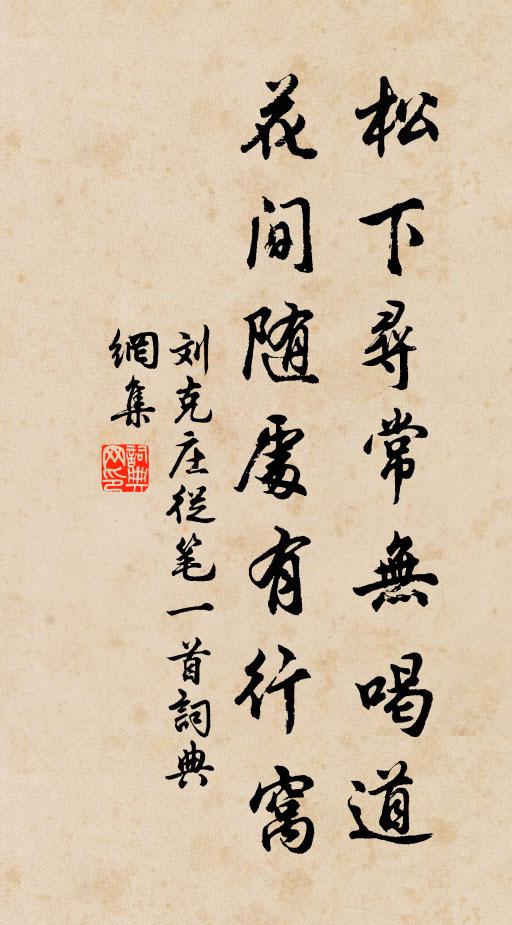 松下尋常無喝道
花间随處有行窩
刘克庄從笔一首詞典
網集
詞典网印